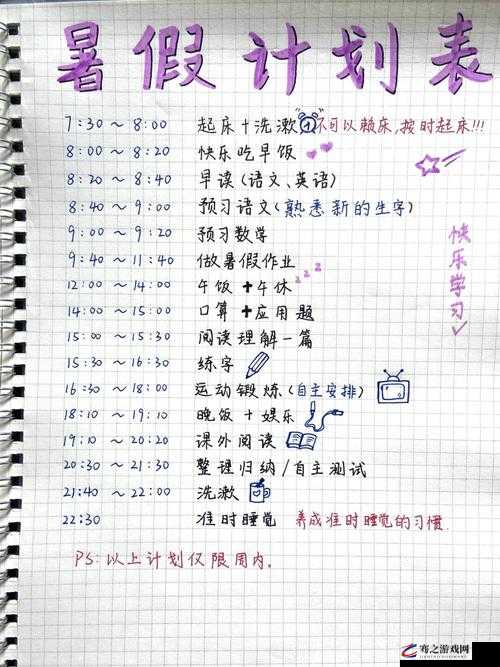 暑假计划表
7:30 ~ 8:00 起床+洗漱 不可以赖床,按时起床!!!
8:00 ~ 8:20 快乐吃早饭
8:20 ~ 8:40 早读(语文、英语)
8:40 ~ 9:00 预习语文(熟悉新的生字)
9:00 ~ 9:20 预习数学
9:40 ~ 11:40 做暑假作业
12:00 ~ 14:00 午饭+午休 zzz
14:00 ~ 15:00 口算+应用题
15:00 ~ 15:30 阅读理解一篇
15:30 ~ 16:30 练字
16:30 ~ 18:00 运动锻炼(自主安排)
18:10 ~ 19:10 晚饭+娱乐
19:10 ~ 20:20 课外阅读
20:30 ~ 21:30 整理归纳/自主测试
21:40 ~ 22:00 洗漱
22:30 准时睡觉 养成准时睡觉的习惯.
PS:以上计划仅限周内.
快乐学习
骞之游戏网